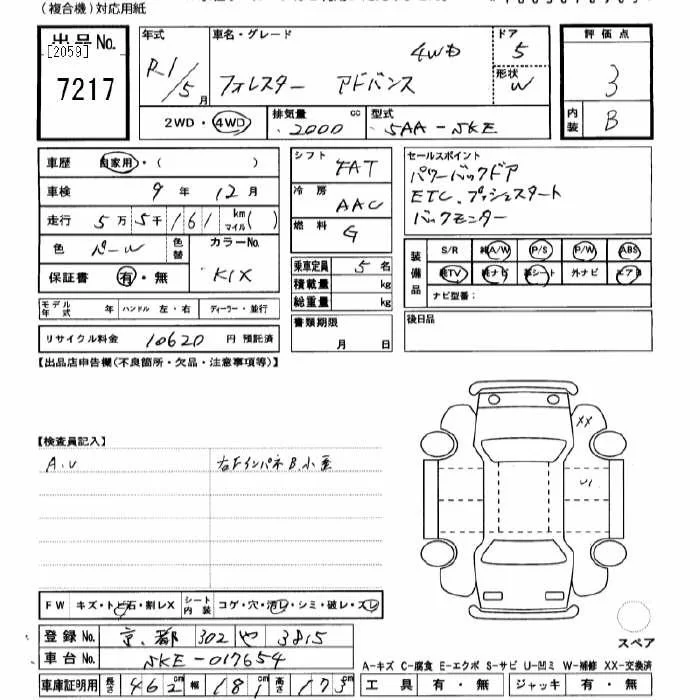 (複合機)対応用紙
出品No. [2059] 7217
年式 R1/5月
車名・グレード フォレスター アドバンス 4WD
ドア 5
形状 W
評価点 3
内装 B
2WD・4WD
排気量 2000 cc
型式 5AA-SKE
車歴 自家用・( )
車検 9年 12月
走行 5万5千161 km マイル( )
色 パール 色替
カラーNo. K1X
保証書 有・無
シフト FAT
冷房 AAC
燃料 G
乗車定員 5名
積載量 kg
総重量 kg
セールスポイント
パワーバックドア
ETC.プッシュスタート
バックモニター
装備品 S/R 純A/W P/S P/W ABS
純TV 純ナビ 革シート 外ナビ エアB
ナビ型番:
モデル年式 年 ハンドル 左・右 ディーラー・並行
リサイクル料金 10620 円 預託済
書類期限 月 日
後日品
【出品店申告欄(不良箇所・欠品・注意事項等)】
【検査員記入】
A.U 右FインパネB.小歪
XX
U1
FW キズ・トビ石・割レX シート内装 コゲ・穴・汚レ・シミ・破レ・スレ
スペア
登録No. 京都 302 や 3815
車台No. SKE-017654
A-キズ C-腐食 E-エクボ S-サビ U-凹ミ W-補修 XX-交換済
車庫証明用 長さ 462cm 幅 181cm 高さ 173cm
工具 有・無 ジャッキ 有・無